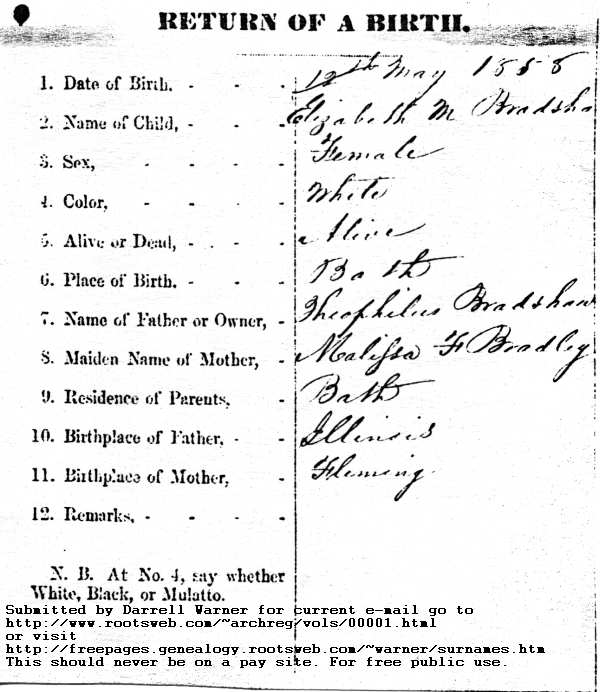 RETURN OF A BIRTH.
1. Date of Birth. - - - 12th May 1858
2. Name of Child, - - - Elizabeth M Bradsha
3. Sex, - - - - Female
4. Color, - - - - White
5. Alive or Dead, - - - - Alive
6. Place of Birth. - - - Bath
7. Name of Father or Owner, - Theophilus Bradshaw
8. Maiden Name of Mother, - Malissa F Bradley
9. Residence of Parents, - Bath
10. Birthplace of Father, - - Illinois
11. Birthplace of Mother, - Fleming
12. Remarks, - - - -
N. B. At No. 4, say whether
White, Black, or Mulatto.
Submitted by Darrell Warner for current e-mail go to
http://www.rootsweb.com/~archreg/vols/00001.html
or visit
http://freepages.genealogy.rootsweb.com/~warner/surnames.htm
This should never be on a pay site. For free public use.